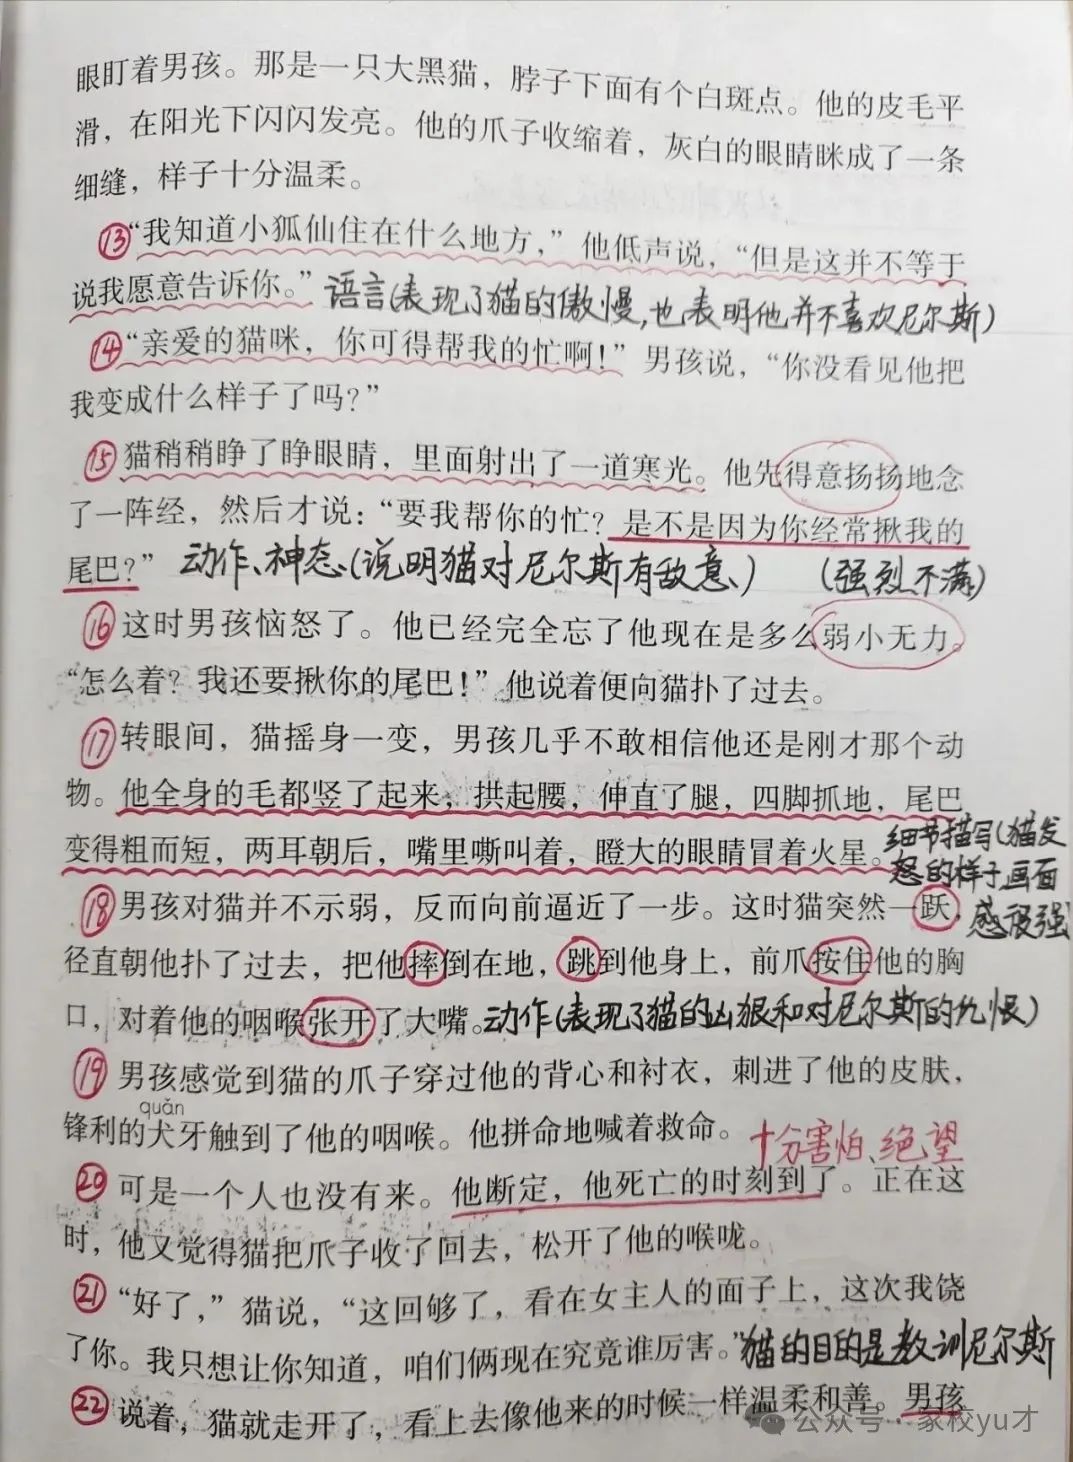 眼盯着男孩。那是一只大黑猫，脖子下面有个白斑点。他的皮毛平
滑，在阳光下闪闪发亮。他的爪子收缩着，灰白的眼睛眯成了一条
细缝，样子十分温柔。
⑬“我知道小狐仙住在什么地方，”他低声说，“但是这并不等于
说我愿意告诉你。”语言(表现了猫的傲慢,也表明他并不喜欢尼尔斯)
⑭“亲爱的猫咪，你可得帮我的忙啊！”男孩说，“你没看见他把
我变成什么样子了吗？”
⑮猫稍稍睁了睁眼睛，里面射出了一道寒光。他先得意扬扬地念
了一阵经，然后才说：“要我帮你的忙？是不是因为你经常揪我的
尾巴？”动作、神态、(说明猫对尼尔斯有敌意、) (强烈不满)
⑯这时男孩恼怒了。他已经完全忘了他现在是多么弱小无力。
“怎么着？我还要揪你的尾巴！”他说着便向猫扑了过去。
⑰转眼间，猫摇身一变，男孩几乎不敢相信他还是刚才那个动
物。他全身的毛都竖了起来，拱起腰，伸直了腿，四脚抓地，尾巴
变得粗而短，两耳朝后，嘴里嘶叫着，瞪大的眼睛冒着火星。
细节描写(猫发
怒的样子,画面
感极强
⑱男孩对猫并不示弱，反而向前逼近了一步。这时猫突然一跃，
径直朝他扑了过去，把他摔倒在地，跳到他身上，前爪按住他的胸
口，对着他的咽喉张开了大嘴。动作(表现了猫的凶狠和对尼尔斯的仇恨)
⑲男孩感觉到猫的爪子穿过他的背心和衬衣，刺进了他的皮肤，
quǎn
锋利的犬牙触到了他的咽喉。他拼命地喊着救命。十分害怕、绝望
⑳可是一个人也没有来。他断定，他死亡的时刻到了。正在这
时，他又觉得猫把爪子收了回去，松开了他的喉咙。
㉑“好了，”猫说，“这回够了，看在女主人的面子上，这次我饶
了你。我只想让你知道，咱们俩现在究竟谁厉害。”猫的目的是教训尼尔斯
㉒说着，猫就走开了，看上去像他来的时候一样温柔和善。男孩
公众号·家校yu才